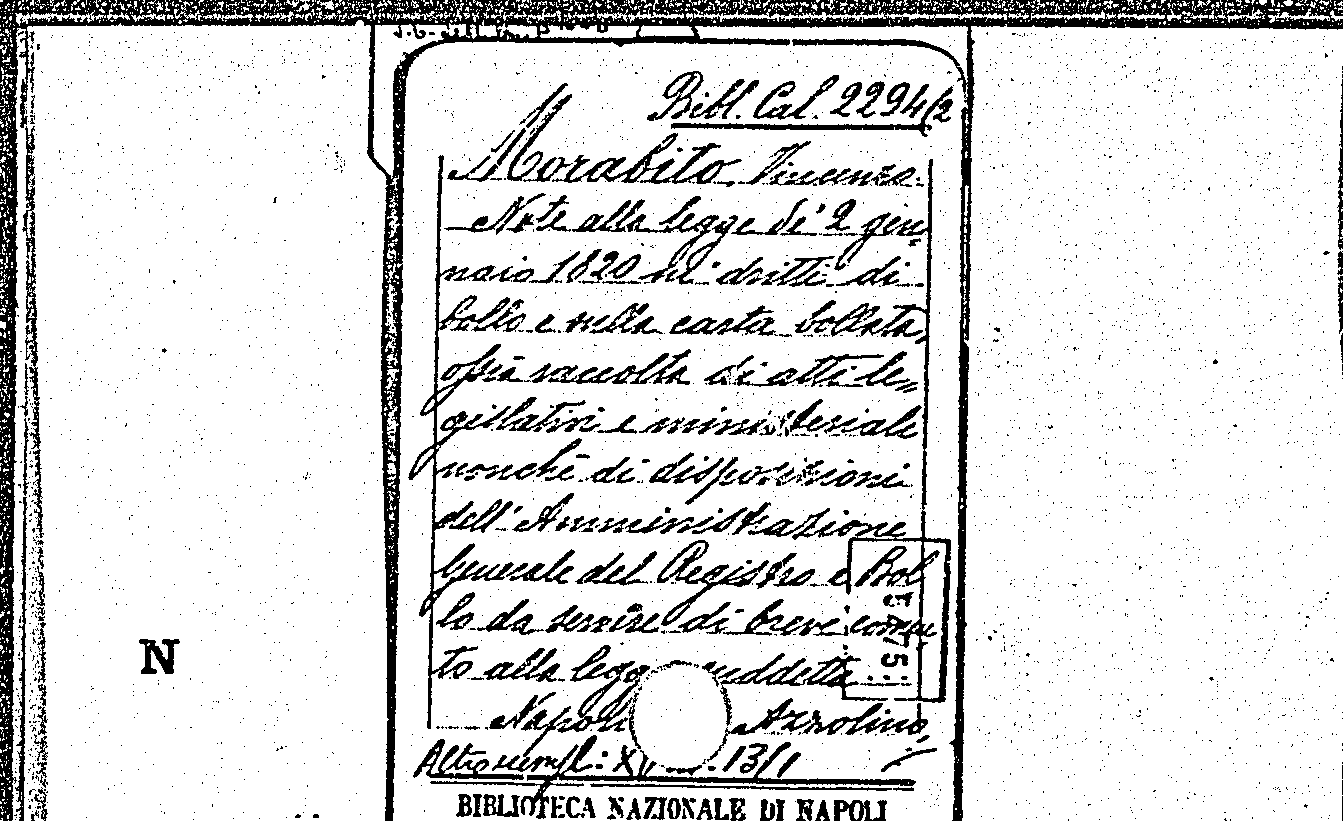 Bibl. Cal. 2294/2
Morabito Vincenzo.
Note alla legge di' 2 gen=
naio 1820 ne' dritti di
bollo e sulla carta bollata,
ossia raccolta di atti le=
gislativi e ministeriali
nonchè di disposizioni
dell'Amministrazione
Generale del Registro e Bol
lo da servire di breve comen
to alla legge suddetta
Napoli Azzolino,
Altro esempl: 13/1
BIBLIOTECA NAZIONALE DI NAPOLI
N